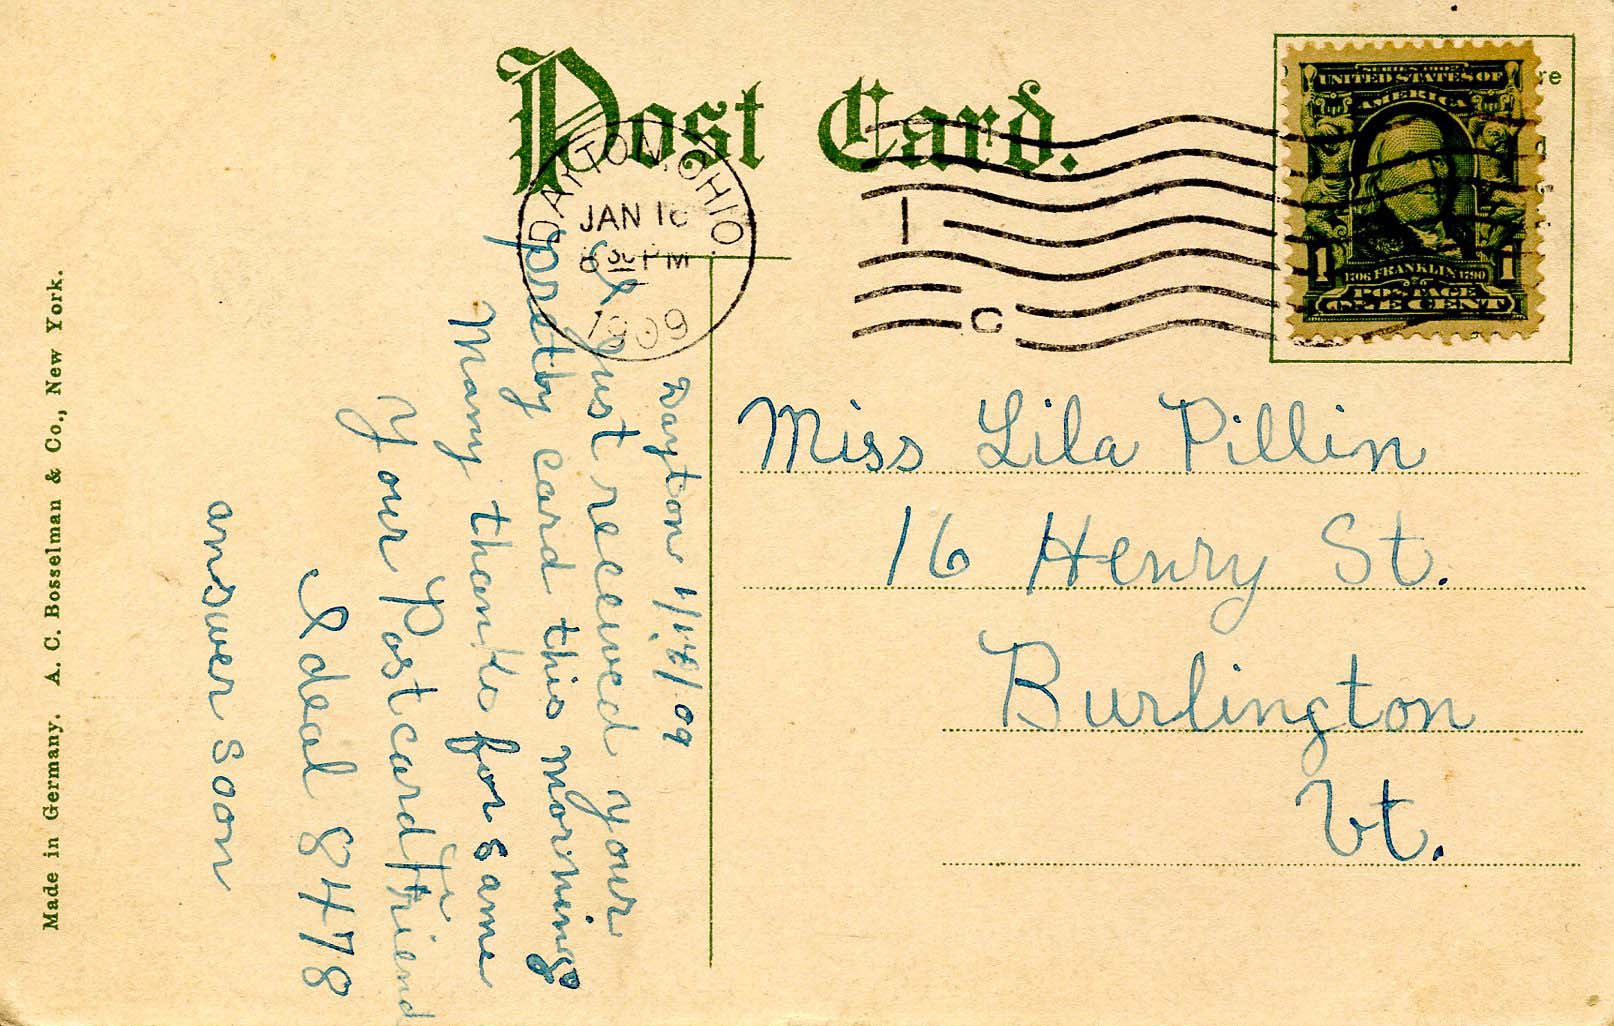 Post Card.
DAYTON, OHIO.
JAN 16
6 30 PM
1909
1
C
SERIES 1902
UNITED STATES OF
AMERICA
1706 FRANKLIN 1790
POSTAGE
1 ONE CENT 1
re
Miss Lila Pillin
16 Henry St.
Burlington
Vt.
Dayton
I just received your
pretty card this morning
Many thanks for same
Your Postcard friend
Ideal 8478
answer soon
Made in Germany. A. C. Bosselman & Co., New York.